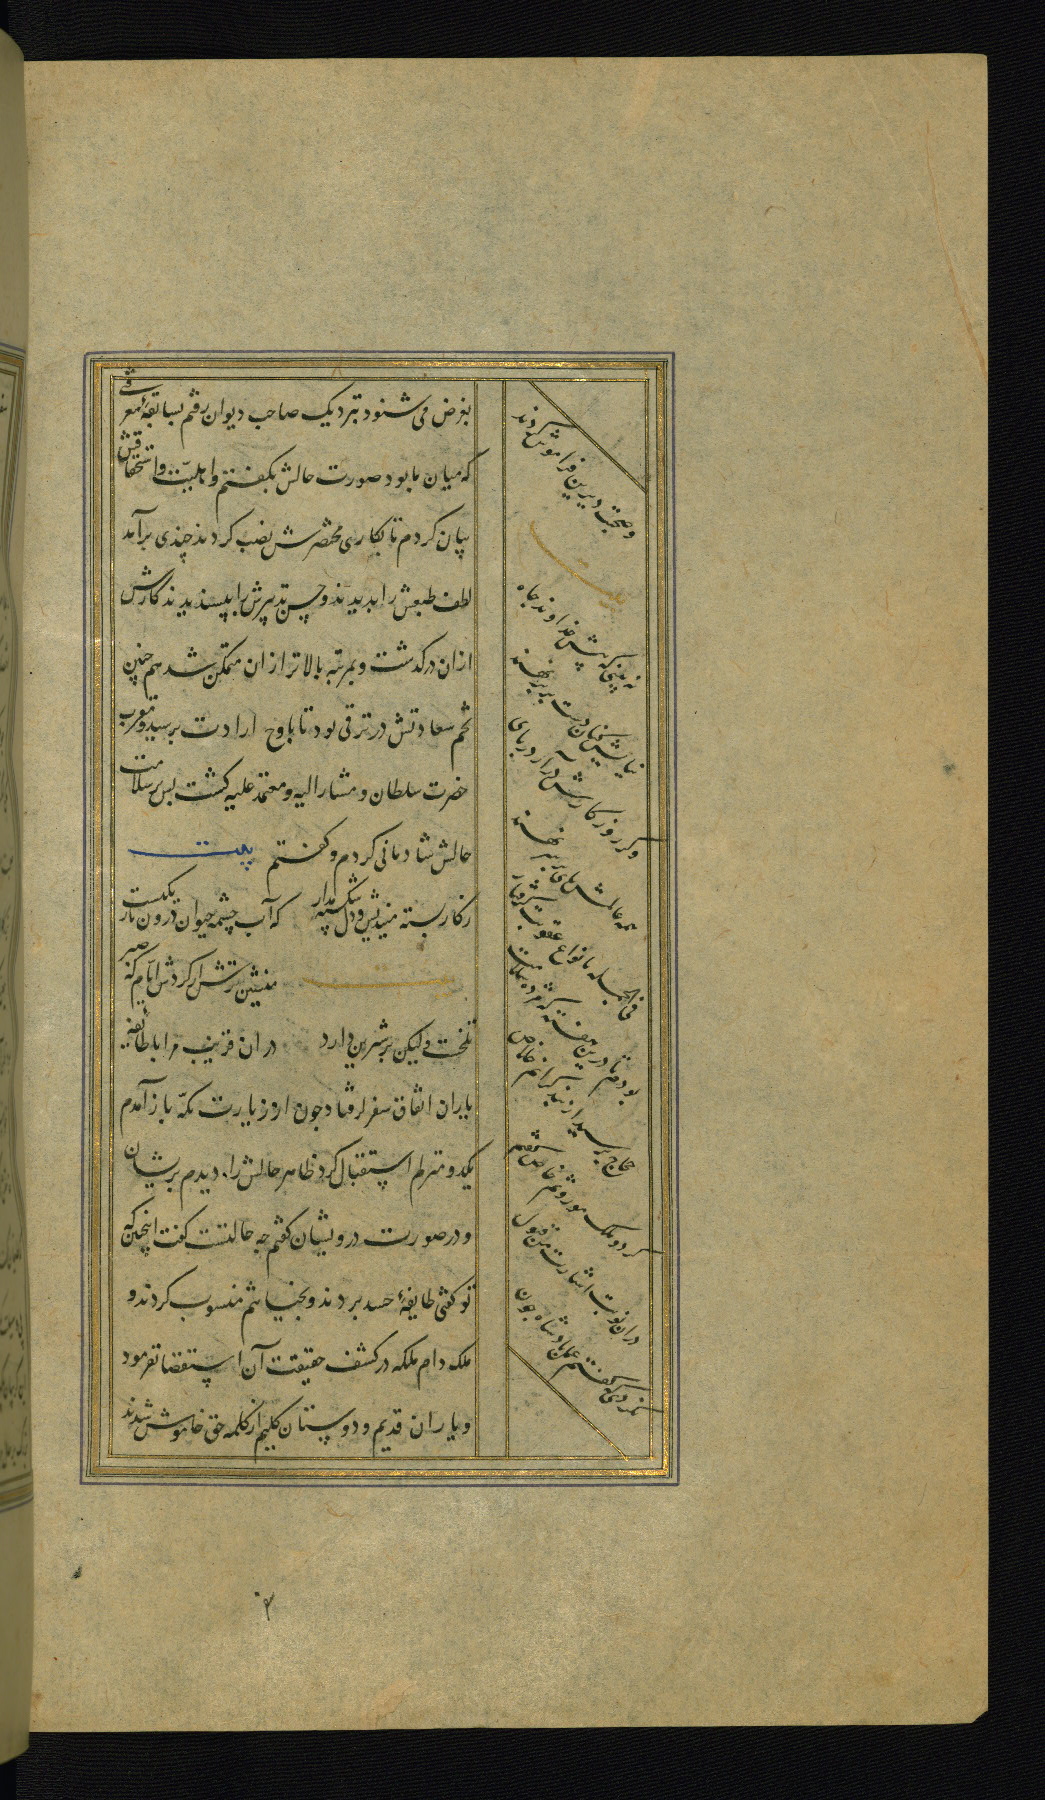 بغرض می شنود نزدیک صاحب دیوان رفتم بسابقهٔ معرفتی
که میان ما بود صورت حالش بگفتم و اهلیت و استحقاقش
بیان کردم تا بکاری مختصرش نصب کردند چندی برآمد
لطف طبعش را بدیدند و حسن تدبیرش را بپسندیدند کارش
ازان درگذشت و بمرتبه بالاتر ازان متمکن شد هم چنین
نجم سعادتش در ترقی بود تا باوج ارادت برسید و مقرب
حضرت سلطان و مشار الیه و معتمد علیه گشت بس بر سلامت
حالش شادمانی کردم و گفتم بیت
ز کار بسته میندیش و دل شکسته مدار که آب چشمه حیوان درون تاریکیست
منشین ترش از گردش ایام که صبر
تلخست ولیکن بر شیرین دارد دران قربت مرا با طایفهٔ
یاران اتفاق سفر افتاد چون از زیارت مکه باز آمدم
یکدو منزلم استقبال کرد ظاهر حالش را دیدم پریشان
و در صورت درویشان گفتم چه حالتست گفت اینچنین که
تو گفتی طایفهٔ حسد بردند و بخیانتم منسوب کردند و
ملک دام ملکه در کشف حقیقت آن استقصا نفرمود
و یاران قدیم و دوستان حمیم از کلمه حق خاموش شدند
و صحبت دیرین فراموش کردند
نه بینی که پیش خداوند جاه
نیایش کنان دست بر بر نهند
وگر روزگارش درآرد ز پای
همه عالمش پای بر سر نهند
فی الجمله بانواع عقوبت گرفتار
بودم تا درین هفته که مژده سلامت
حجاج برسید از بند گرانم خلاص
کرد و ملک موروثم خاص گفتم
دران نوبت اشارت من قبول
نکردی که گفتم عمل پادشاه چون